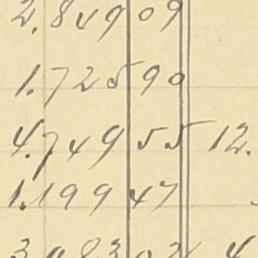 2.849 09
1.725 90
4.749 55 12.
1.199 47
3.083 02 4